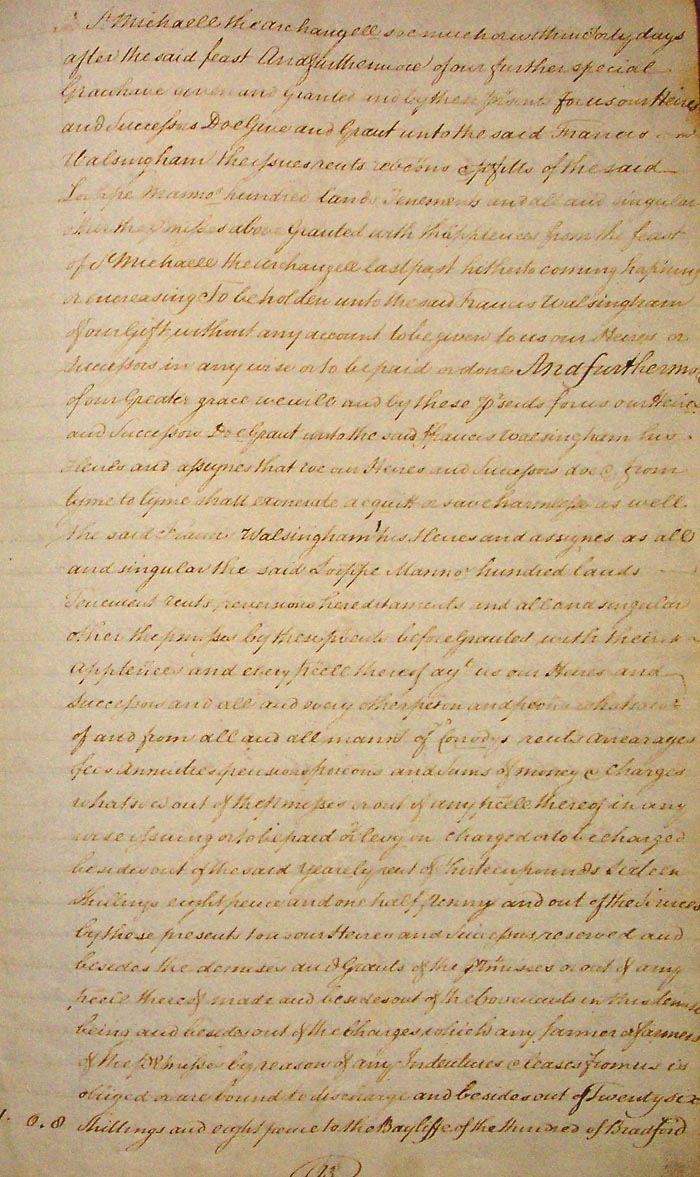 St Michaell the archangell soe much or within forty days
after the said feast And furthermore of our further special
Grace have given and Granted and by these p'sents for us our Heires
and Successors Doe Give and Grant unto the said Francis
Walsingham the issues rents revc͠ons & p'fitts of the said
Lo'ppe Manno' hundred lands Tenements and all and singular
other the p'misses above Granted with th'apptences from the feast
of St Michaell the archangell last past hitherto coming hap'ning
or encreasing To be holden unto the said Francis Walsingham
of our Gift without any account to be given to us our Heires or
Successors in any wise or to be paid or done And furthermo
of our Greater grace we will and by these p'sents for us our Heires
and Successors Doe Grant unto the said Francis Walsingham his
Heires and assynes that we our Heires and Successors doe & from
tyme to tyme shall exonerate acquitt & save harmlesse as well
the said Francis Walsingham his Heires and assynes as all
and singular the said Lo'ppe Manno' hundred lands
Tenement rents reversions hereditaments and all and singular
other the p'misses by these p'sents before Granted with their
apptences and every p'cell thereof ayt us our Heires and
Successors and all and every other person and p'sons whatsoever
of and from all and all mann' of Corrodys rents arearages
fees Annuities pensions porcions and Sums of money & Charges
whatsoev' out of the p'misses or out of any p'cell thereof in any
wise issuing or to be paid or levy on charged or to be charged
besides out of the said Yearely rent of thirteen pounds sixteen
Shillings eight pence and one half penny and out of the Services
by these presents to us our Heires and Successors reserved and
besides the demises and Grants of the p'misses or out of any
p'cell thereof made and besides out of the Covenants in this demise
being and besides out of the Charges which any farmer or farmers
of the p'misses by reason of any Indentures & leases from us is
obliged or are bound to discharge and besides out of Twenty six
1. 6. 8 Shillings and eight pence to the Bayliffe of the Hundred of Bradford
13